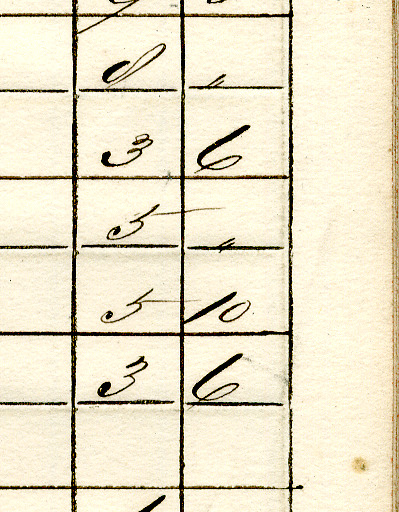 8 "
3 6
5 "
5 10
3 6